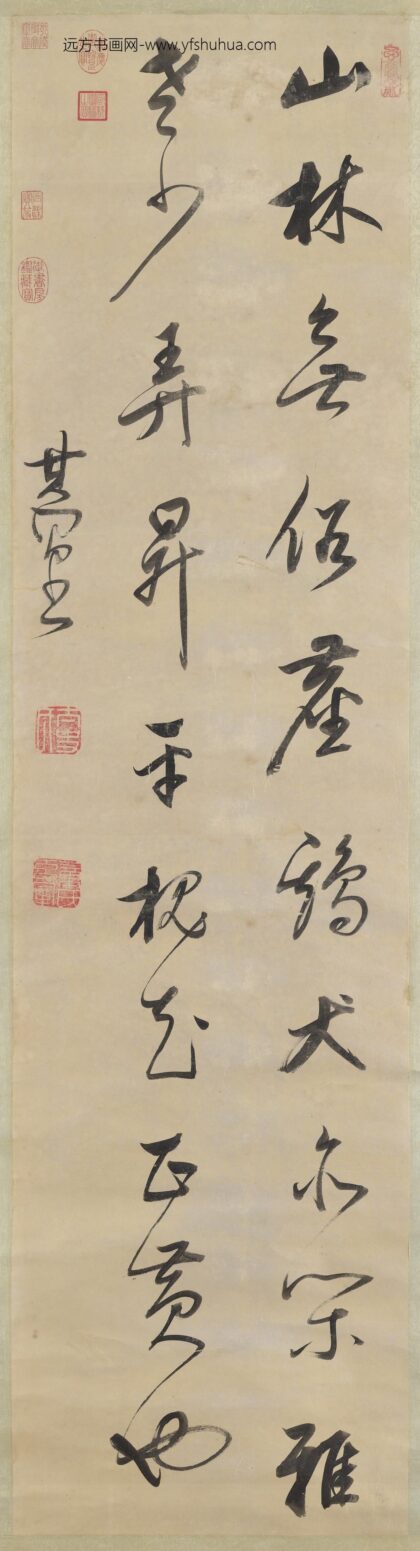 远方书画网-www.yfshuhua.com
山林無俗塵鷄犬亦閑雅
老少弄昇平槐花正黄也
其昌書